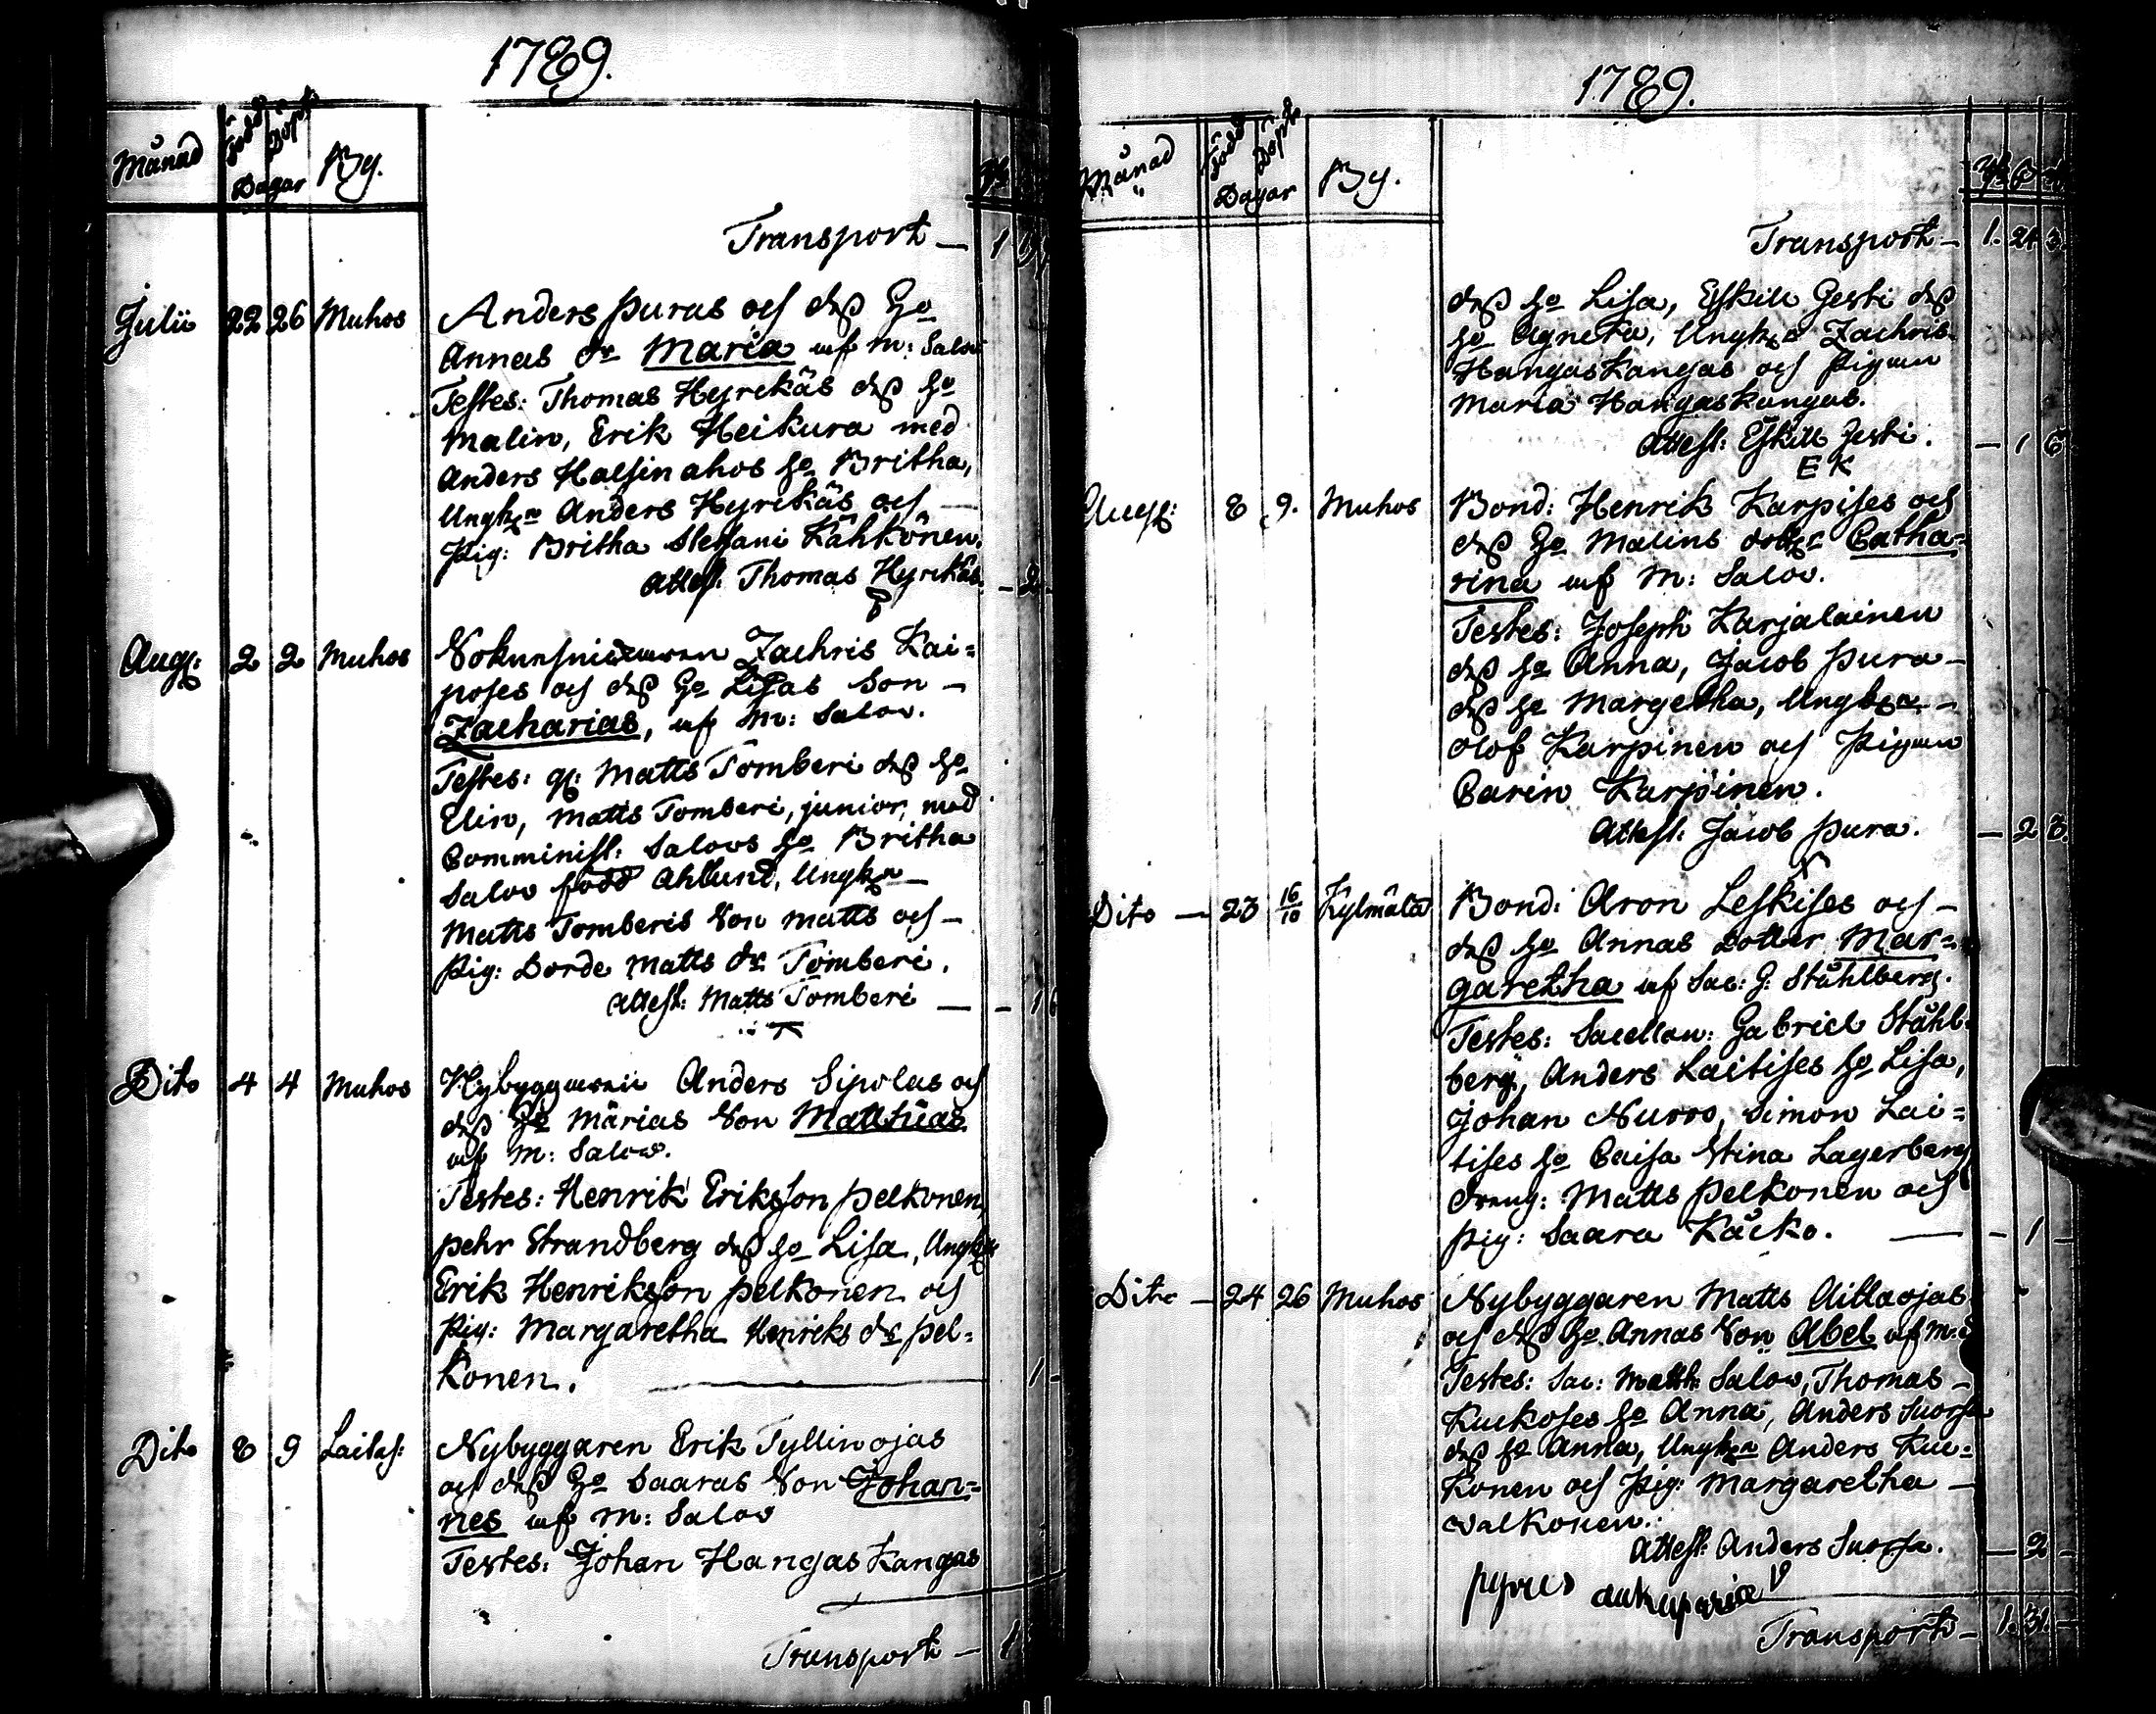 1789.
Månad Född Döpt Dagar By.
Transport — 1
Julii 22 26 Muhos Anders Puras och deß Ho
Annas dr Maria af M: Salov
Testes: Thomas Hyrckäs deß ho
Malin, Erik Heikura med
Anders Halsinahos ho Britha,
Ungkn Anders Hyrckäs och —
Pig: Britha Stefani Kähkönen.
Attest: Thomas Hyrckäs. - 2
Aug: 2 2 Muhos Zachris Kai=
poses och deß Ho Lisas Son —
Zacharias, af M: Salov.
Testes: gl: Matts Tomberi deß ho
Elin, Matts Tomberi, junior, med
Comminist: Salovs ho Britha
Salov född Ahlund, Ungkn —
Matts Tomberis Son Matts och —
Pig: Dorde Matts dr Tomberi.
Attest: Matts Tomberi — - 1
Dito 4 4 Muhos Nybyggaren Anders Sipolas och
deß Ho Marias Son Matthias
af M: Salov.
Testes: Henrik Eriksson Pelkonen,
Pehr Strandberg deß ho Lisa, Ungkn
Erik Henriksson Pelkonen och
Pig: Margaretha Henriks dr Pel=
konen. — 1 -
Dito 8 9 Laitas: Nybyggaren Erik Tyllinojas
och deß Ho Saaras Son Johan=
nes af M: Salov
Testes: Johan Hangaskangas
Transport — 1
1789.
Månad Född Döpt Dagar By.
Transport — 1. 24 3.
deß ho Lisa, Eskill Jesti deß
ho Agneta, Ungkn Zachris
Hangaskangas och Pigan
Maria Hangaskangas.
Attest: Eskill Jesti. — 1 6
E K
Aug: 8 9. Muhos Bond: Henrik Karpises och
deß Ho Malins dotter Catha=
rina af M: Salov.
Testes: Joseph Karjalainen
deß ho Anna, Jacob Pura —
deß ho Margetha, Ungkn —
Olof Karpinen och Pigan
Carin Karpinen.
Attest: Jacob Pura. — 2 3.
Dito — 23 16/10 Kylmälä Bond: Aron Leskises och —
deß ho Annas Dotter Mar=
garetha af Sac: G: Ståhlberg.
Testes: Sacellan: Gabriel Ståhl=
berg, Anders Laitises ho Lisa,
Johan Nurro, Simon Lai=
tises ho Caisa Stina Lagerberg
Dreng: Matts Pelkonen och
Pig: Saara Käcko. — - 1 -
Dito — 24 26 Muhos Nybyggaren Matts Aittaojas
och deß Ho Annas Son Abel af M: S
Testes: Sac: Matth: Salov, Thomas —
Kuckoses ho Anna, Anders Suorsa
deß ho Anna, Ungkn Anders Kuc=
konen och Pig: Margaretha —
Walkonen.
Attest: Anders Suorsa. — 2 -
pyrus aukuparia
Transport — 1. 31. -